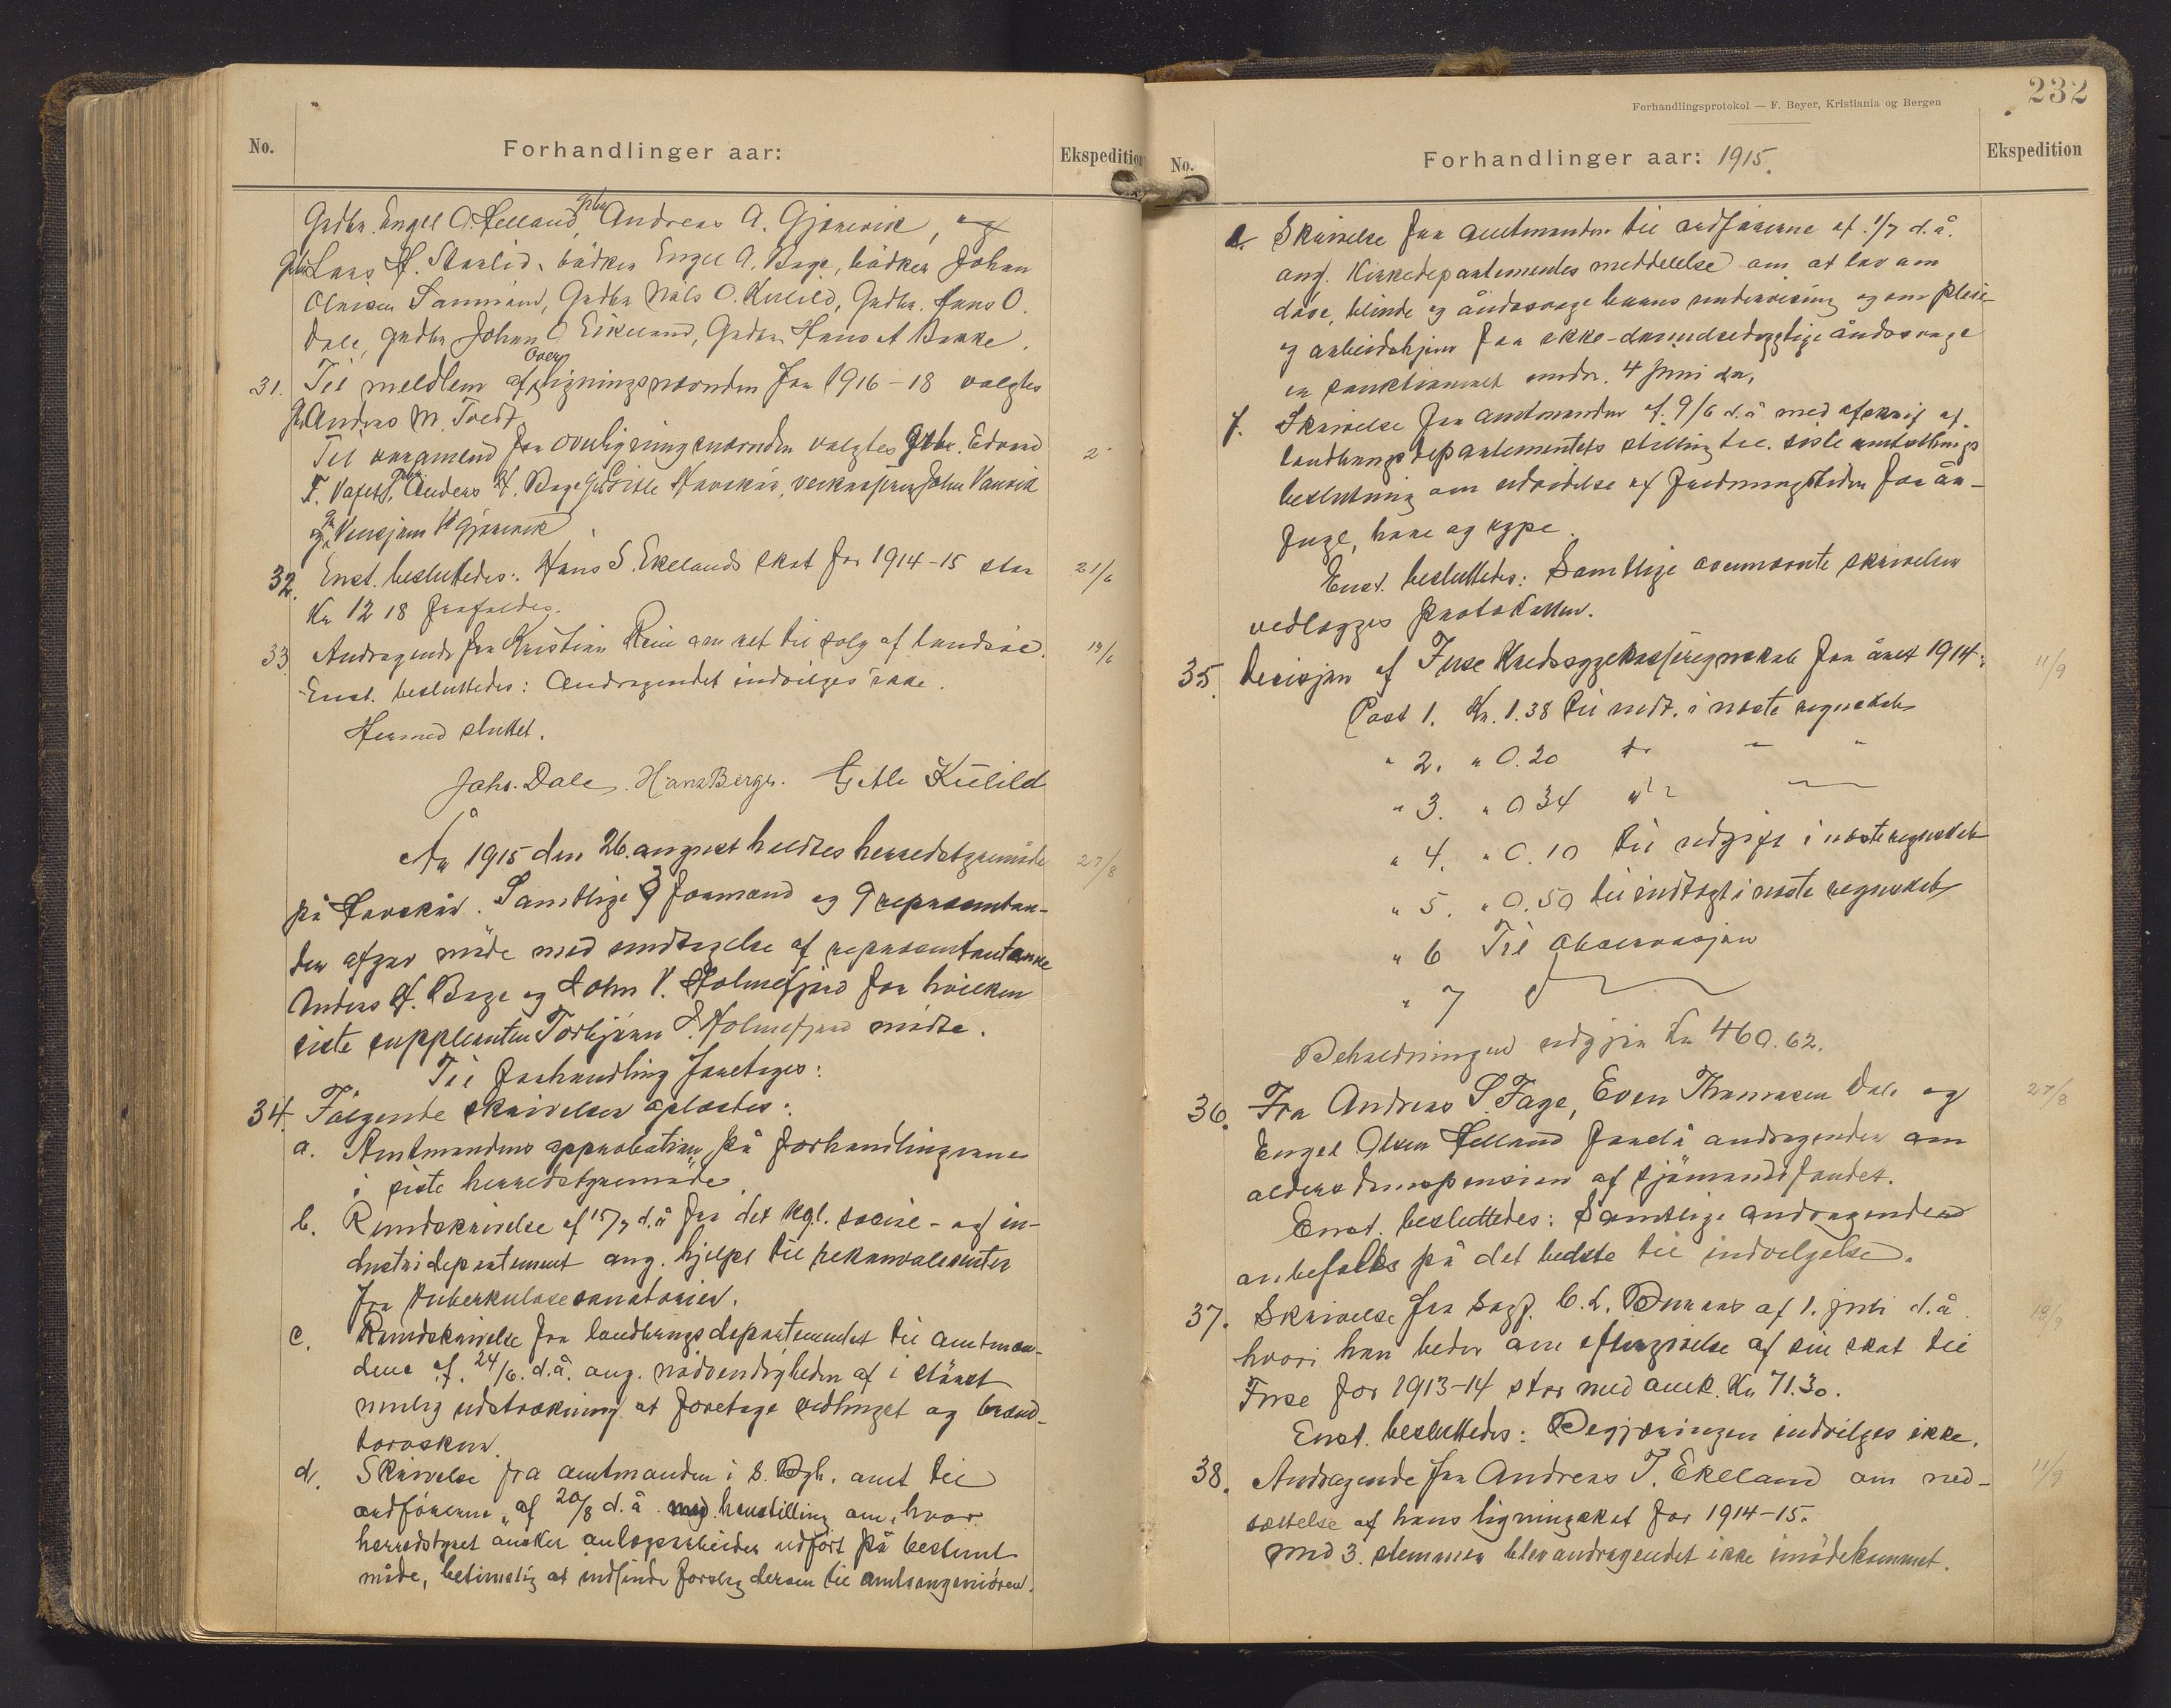 No.
Forhandlinger aar:
Ekspedition
Grdbr. Engel O. Helland, Grbr. Andreas A. Gjönevik, og
Grbr. Lars H. Skarlid, bödker Engel A. Bage, bödker Johan
Olaisen Sammand, Grdbr Nils O. Kulild, Grdbr. Hans O.
Dale, grdbr Johan O Eikeland, Grdbr. Hans A Bakke.
31. Til medlem af Overligningsnævnden for 1916-18 valgtes
Gr. Andreas M. Tvedt
Til varamænd for overligningsnævnden valgtes Grbr. Edvard
F. Vaxet, Grbr. Anders H. Bage, Grbr. Gitle Havskår, verksfører John Vaurik
og Gr. Venjam H Gjönevik
2
32. Enst. besluttedes: Hans S. Ekelands skat for 1914-15 stor
Kr 12 18 frafaldes.
21/6
33 Andragende fra Kristian Rein om ret til salg af landsöl.
Enst. besluttedes: Andragendet indvilges ikke.
19/6
Hermed sluttet.
Johs. Dale. Hans Berge. Gitle Kulild
År 1915 den 26. august holdtes herredstyremöde
27/8
på Havskår. Samtlige 3 formænd og 9 repræsentan-
ter afgav möde med undtagelse af repræsentanterne
Anders H. Bage og John V. Holmefjord for hvilken
siste suppleanten Torbjörn S. Holmefjord mödte.
Til forhandling foretoges:
34. Fölgende skrivelser oplæstes:
a. Amtmandens approbation på forhandlingerne
i siste herredstyremöde
b. Rundskrivelse af 15/7 d.å fra det kgl. social- og in-
dustridepartement ang. hjelpe til rekonvalesenter
fra tuberkulosesanatorier.
c. Rundskrivelse fra landbrugsdepartementet til amtmæn-
dene af 24/6. d.å. ang. nödvendigheden af i störst
mulig udstrækning at foretage vedhuget og brænd-
torvsken.
d. Skrivelse fra amtmanden i S. Bgh. amt til
ordförerne af 20/8 d.å. med henstilling om, hvor
herredstyret önsker anlægsarbeider udfört på bestemt
måde, betimelig at indsende forslag dersom til amtsingeniören.
232
Forhandlingsprotokol — F. Beyer, Kristiania og Bergen
No.
Forhandlinger aar: 1915.
Ekspedition
e. Skrivelse fra amtmanden til ordförerne af 1/7 d.å.
ang. Kirkedepartementes meddelelse om at lov om
döve, blinde og åndssvage barns undervisning og om pleie-
og arbeidshjem for ikke-dannelsesdygtige åndssvage
er sanktioneret under. 4 juni d.å.
f. Skrivelse fra amtmanden af 9/6 d.å. med afskrift af
landbrugsdepartementets stilling til siste amtstings
beslutning om udvidelse af fredningstiden for år-
fugl, hare og rype.
Enst. besluttedes: Samtlige ovennævnte skrivelser
vedlægges protokollen.
35. Decisjon af Fuse Kredssygekasseregnskab for året 1914:
11/9
Post 1. Kr. 1.38 til indt. i næste regnskab
" 2. " 0.20 do " "
" 3. " 0 34 "
" 4. " 0.10 til udgift i næste regnskab
" 5. " 0.50 til indtægt i næste regnskab
" 6 Til observasjon
" 7
Beholdningen udgjör Kr 460.62.
36. Fra Andreas S. Fage, Even Thomasen Dale og
27/8
Engel Olsen Helland forelå andragender om
alderdomspension af sjömandsfondet.
Enst. besluttedes: Samtlige andragender
anbefales på det bedste til indvilgelse.
37. Skrivelse fra sagf. C. L. af 1. juli d.å
19/9
hvori han beder om eftergivelse af sin skat til
Fuse for 1913-14 stor med omk. Kr 71.30.
Enst. besluttedes: Begjæringen indvilges ikke.
38. Andragende fra Andreas T. Ekeland om ned-
11/9
sættelse af hans ligningsskat for 1914-15.
Med 3. stemmer blev andragendet ikke imödekommet.